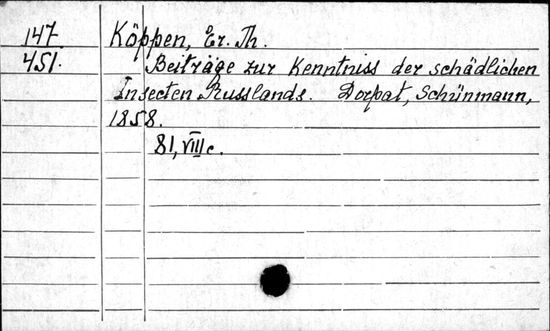 147. Köppen, Er. Th.
451. Beiträge zur Kenntniss der schädlichen
Insecten Russlands. Dorpat, Schünmann,
1858.
81, VIII c.